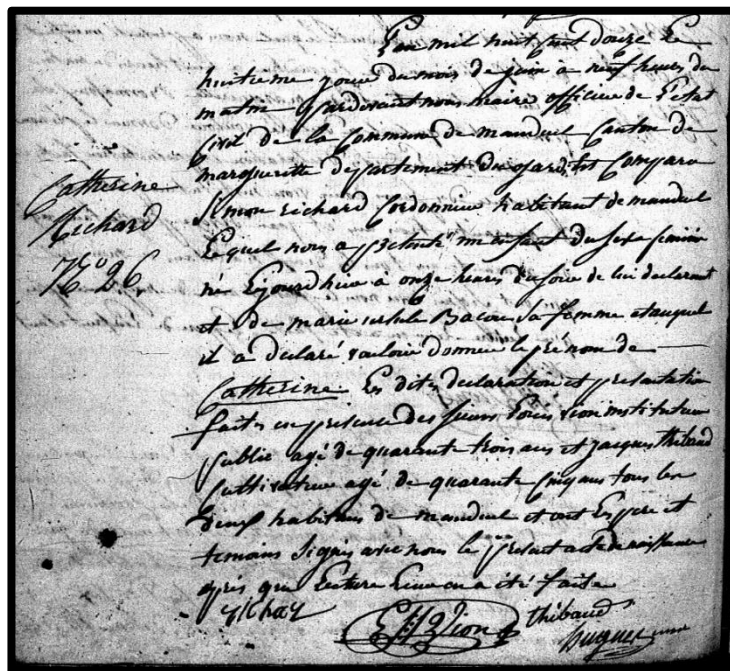 Catherine
Richard
N° 26.
L'an mil huit cent douze le
huitieme jour du mois de juin a neuf heures du
matin pardevant nous maire officier de l'état
civil de la commune de manduel canton de
margueritte departement du gard, est comparu
simon richard cordonnier habitant de manduel
lequel nous a présenté un enfant du sexe féminin
né à onze heures du soir de lui declarant
et de marie ursule sa femme et auquel
il a declaré vouloir donner le prenom de
Catherine les dites declaration et presentation
faites en presence des sieurs Louis sion instituteur
public agé de quarante trois ans et jacques thibaud
cultivateur agé de quarante cinq ans tous les
deux habitans de manduel et ont les pere et
temoins signés avec nous le present acte de naissance
après que lecture leur en a été faite
Sion thibaud
hugues maire